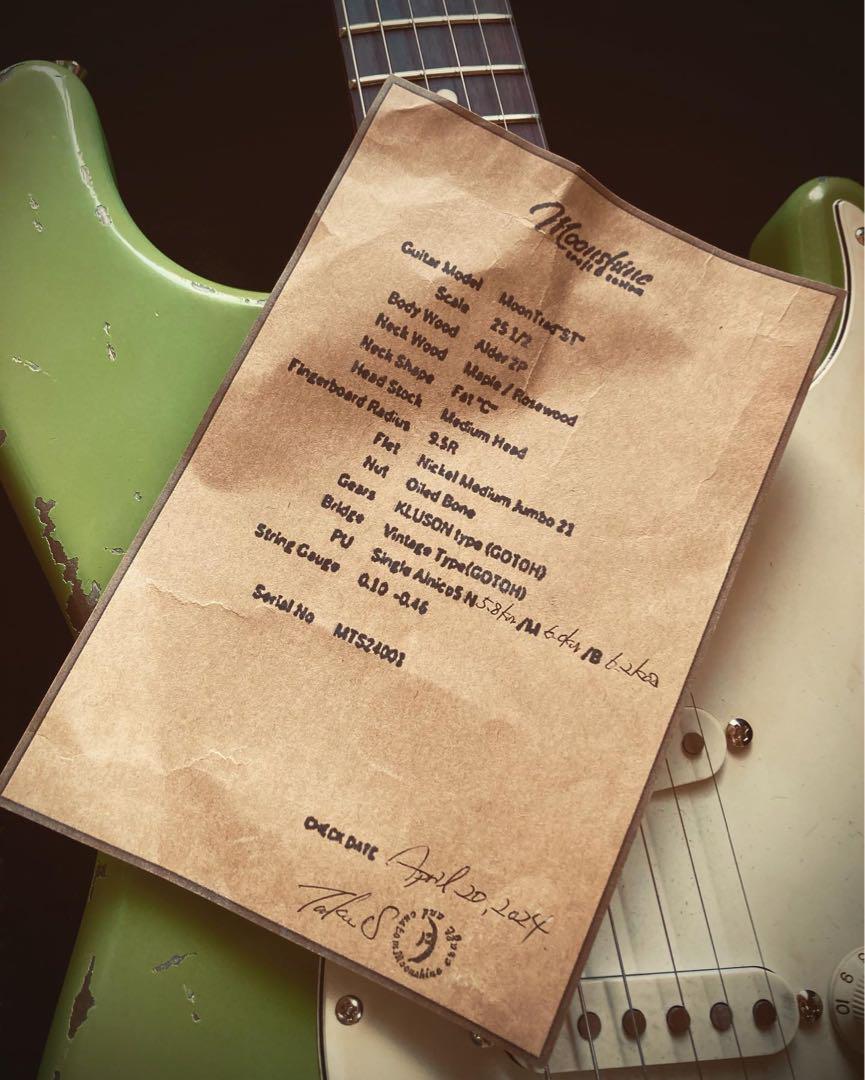 Moonshine
craft & custom
Guitar Model MoonTrad"ST"
Scale 25 1/2
Body Wood Alder 2P
Neck Wood Maple / Rosewood
Neck Shape Fat "C"
Head Stock Medium Head
Fingerboard Radius 9.5R
Flet Nickel Medium Jumbo 21
Nut Oiled Bone
Gears KLUSON type (GOTOH)
Bridge Vintage Type(GOTOH)
PU Single Alnico5 N 5.8kΩ /M 6.0kΩ /B 6.2kΩ
String Gauge 0.10 -0.46
Serial No MTS24001
CHECK DATE April 20, 2024
Taku S
craft and custom Moonshine
10 9